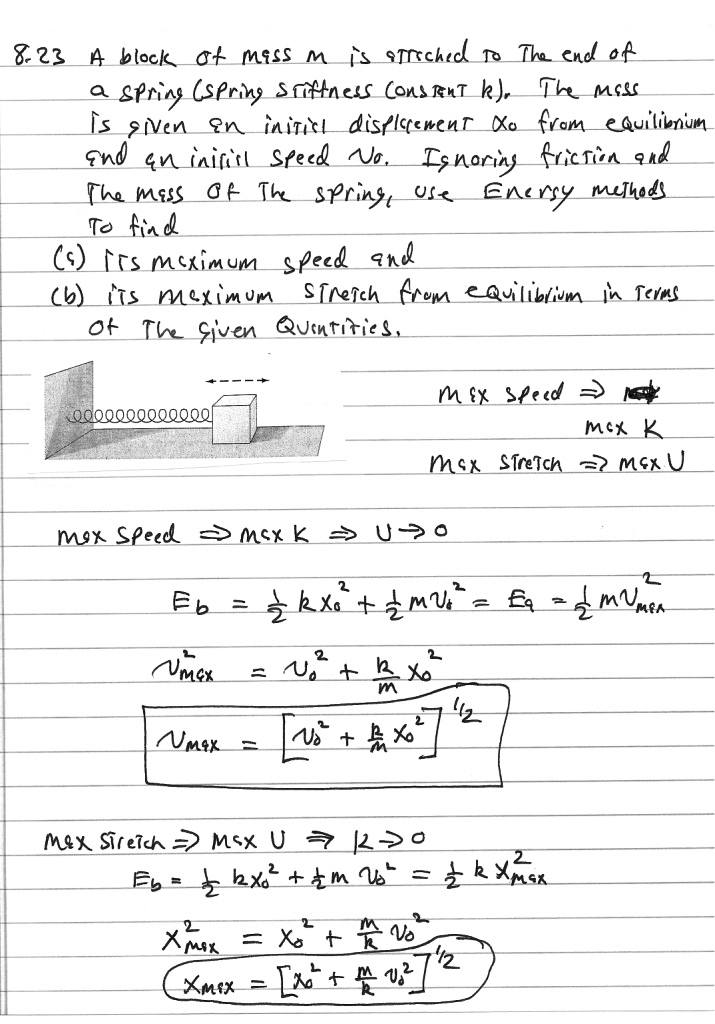 8-23 A block of mass m is attached to the end of
a spring (spring stiffness constant k). The mass
is given an initial displacement x₀ from equilibrium
and an initial speed v₀. Ignoring friction and
the mass of the spring, use Energy methods
to find
(a) its maximum speed and
(b) its maximum stretch from equilibrium in terms
of the given quantities.
max speed ⇒
max K
max stretch ⇒ max U
max speed ⇒ max K ⇒ U → 0
E_b = ½ k x₀² + ½ m v₀² = E_a = ½ m v_max²
v_max² = v₀² + k/m x₀²
v_max = [v₀² + k/m x₀²]^1/2
max stretch ⇒ max U ⇒ K → 0
E_b = ½ k x₀² + ½ m v₀² = ½ k x_max²
x_max² = x₀² + m/k v₀²
x_max = [x₀² + m/k v₀²]^1/2